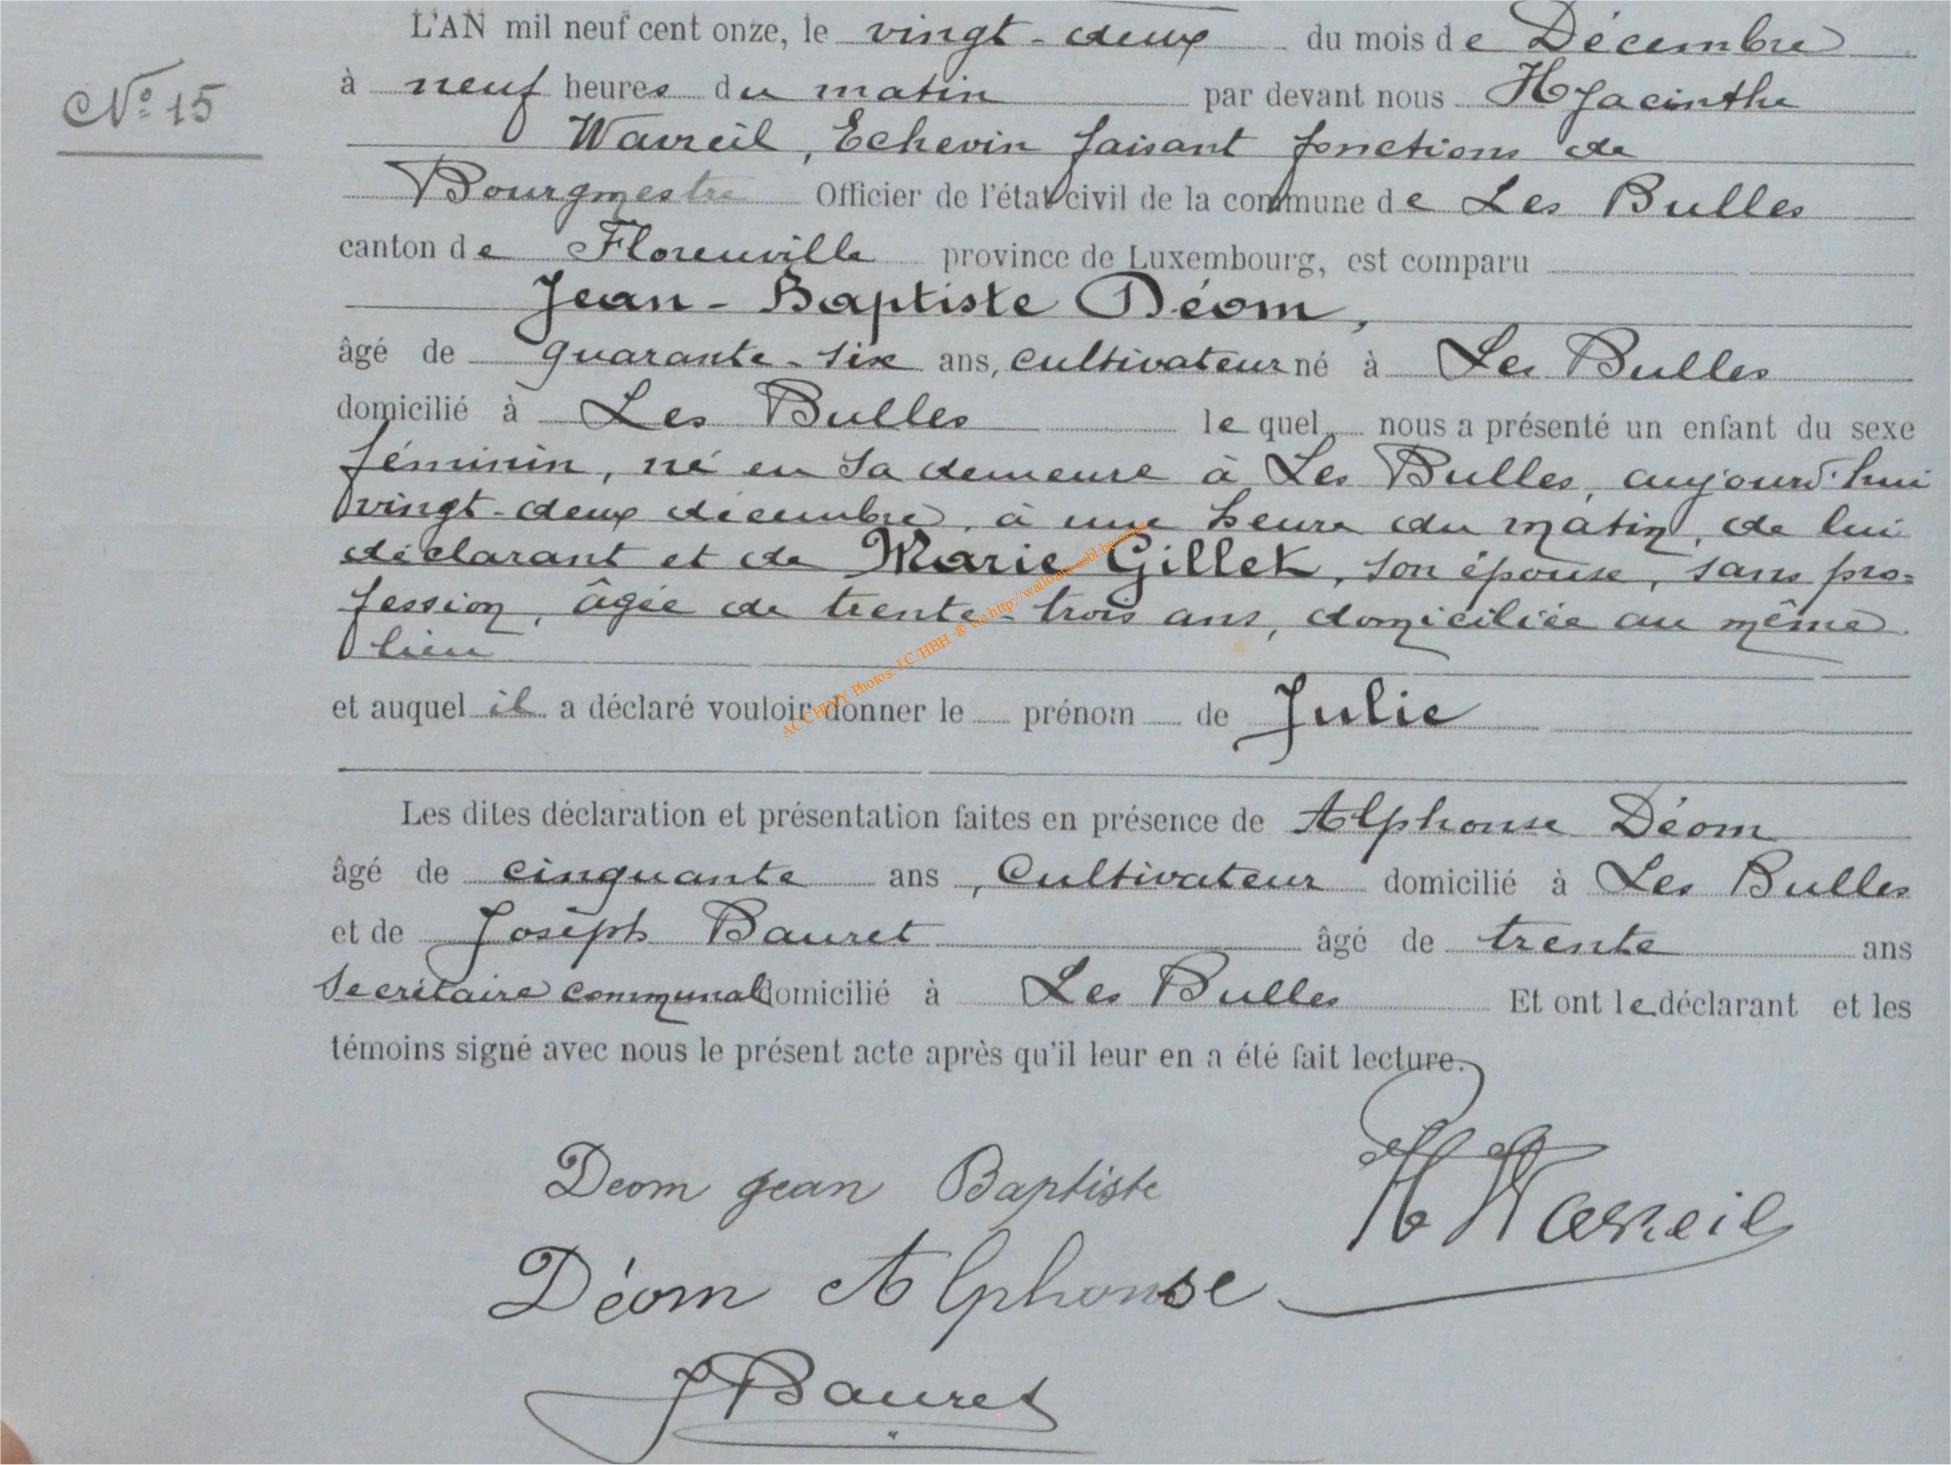 L'AN mil neuf cent onze, le vingt-deux du mois de Décembre
N° 15
à neuf heures du matin par devant nous Hyacinthe
Wavreil, Echevin faisant fonctions de
Bourgmestre Officier de l'état civil de la commune de Les Bulles
canton de Florenville province de Luxembourg, est comparu
Jean-Baptiste Déom,
âgé de quarante-six ans, cultivateur né à Les Bulles
domicilié à Les Bulles lequel nous a présenté un enfant du sexe
féminin, né en sa demeure à Les Bulles, aujourd'hui
vingt-deux décembre, à une heure du matin, de lui
déclarant et de Marie Gillet, son épouse, sans pro=
fession, âgée de trente-trois ans, domiciliée au même
lieu
ACCHBNY Photos. J.C/HBH ® via http://wallonia-asbl.be/actes
et auquel il a déclaré vouloir donner le prénom de Julie
Les dites déclaration et présentation faites en présence de Alphonse Déom
âgé de cinquante ans, Cultivateur domicilié à Les Bulles
et de Joseph Bauret âgé de trente ans
Secrétaire communal domicilié à Les Bulles Et ont le déclarant et les
témoins signé avec nous le présent acte après qu'il leur en a été fait lecture.
Deom jean Baptiste
H Wavreil
Déom Alphonse
J Bauret